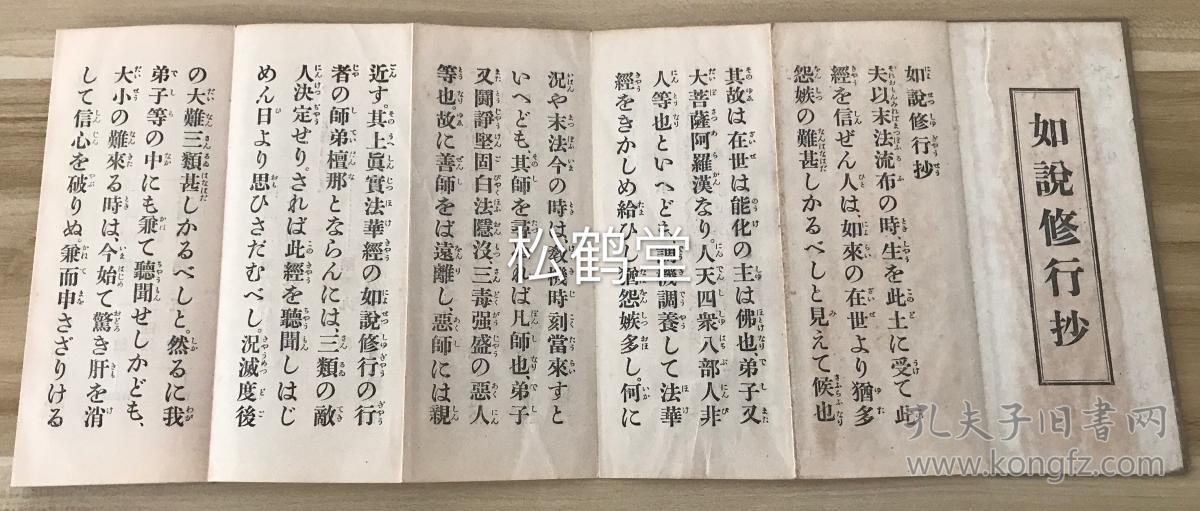 如說修行抄
如說修行抄
夫以末法流布の時、生を此土に受て此
經を信ぜん人は、如來の在世より猶多
怨嫉の難甚しかるべしと見えて候也
其故は在世は能化の主は佛也弟子又
大菩薩阿羅漢なり。人天四衆八部人非
人等也といへども調機調養して法華
經をきかしめ給ひし猶怨嫉多し。何に
況や末法今の時は教機時刻當來すと
いへども其師を尋れば凡師也、弟子
又鬪諍堅固白法隱沒三毒强盛の惡人
等也。故に善師をば遠離し、惡師には親
近す。其上眞實法華經の如說修行の行
者の師弟檀那とならんには、三類の敵
人決定せり。されば此經を聽聞しはじ
めん日より思ひさだむべし。況滅度後
の大難三類甚しかるべしと。然るに我
弟子等の中にも兼て聽聞せしかども、
大小の難來る時は、今始て驚き肝を消
して信心を破りぬ。兼而申さざりける
松鹤堂
孔夫子旧书网
www.kongfz.com